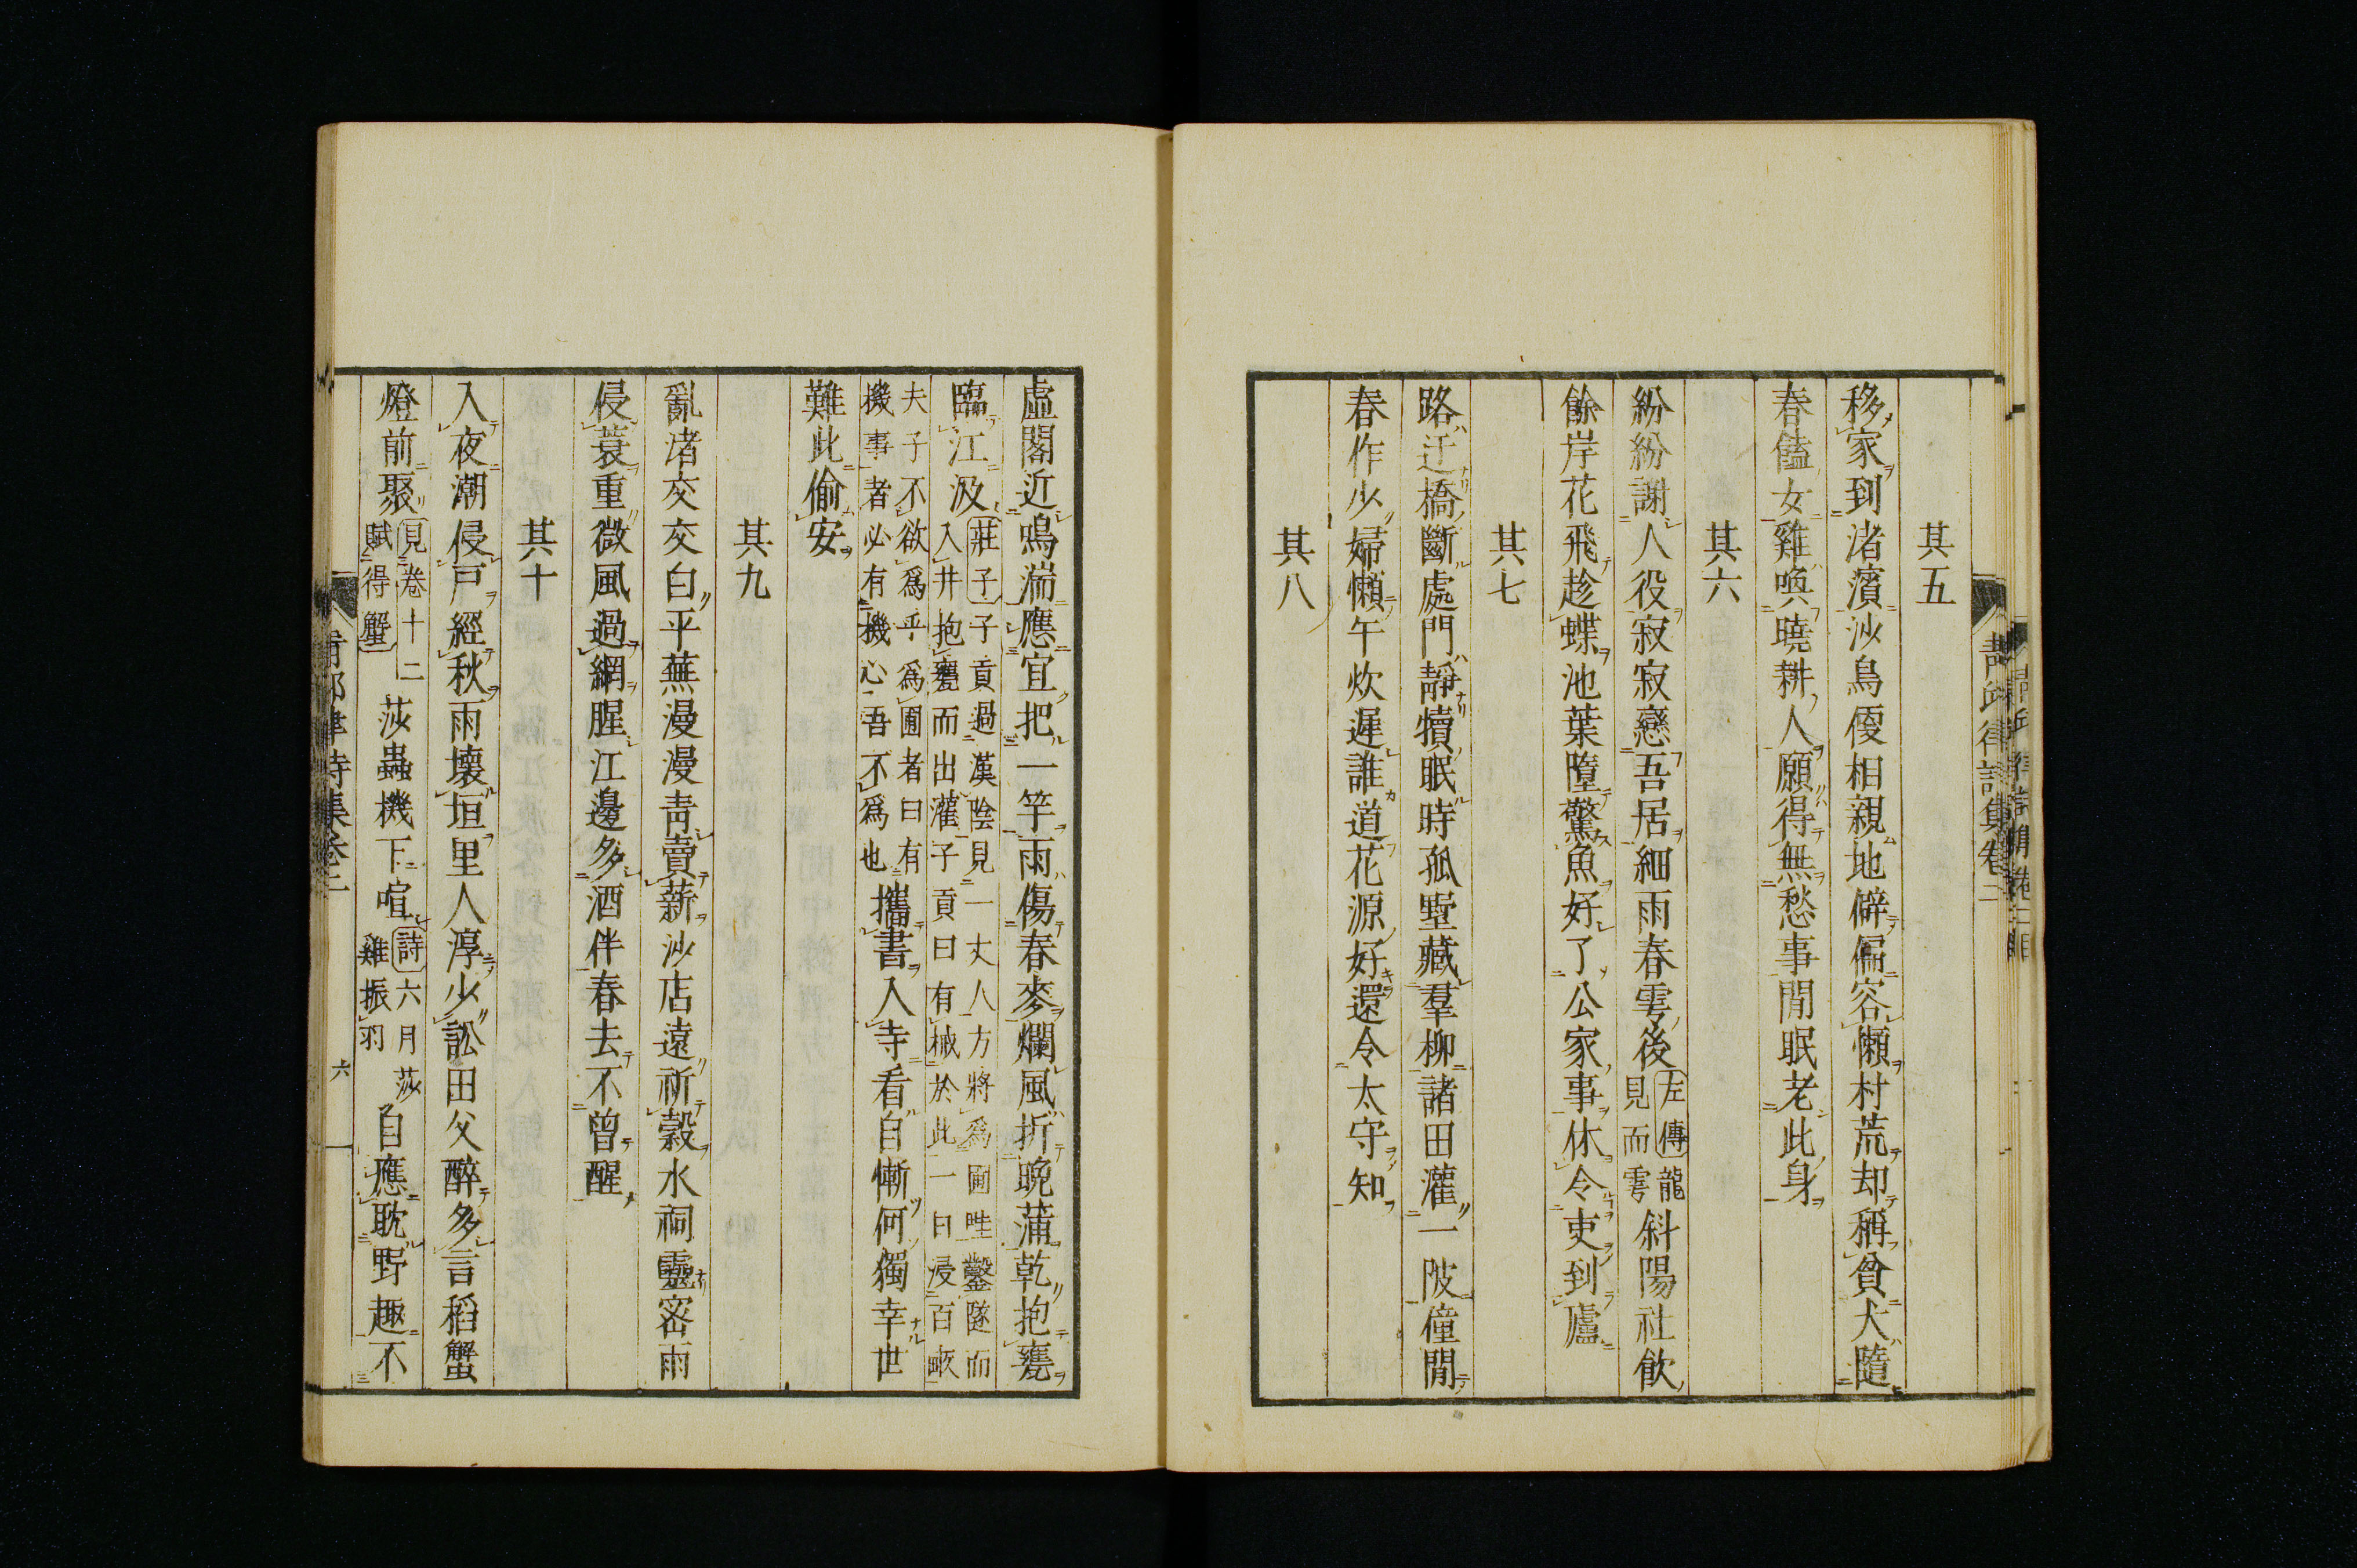 青邱律詩集卷二
其五
移家到渚濱沙鳥便相親地僻偏容懶村荒却稱貧犬隨
春饁女雞喚曉耕人願得無愁事閒眠老此身
其六
紛紛謝人役寂寂戀吾居細雨春雩後左傳龍見而雩斜陽社飲
餘岸花飛趁蝶池葉墮驚魚好了公家事休令吏到廬
其七
路迂橋斷處門靜犢眠時孤墅藏羣柳諸田灌一陂僮閒
春作少婦懶午炊遲誰道花源好還令太守知
其八
虛閣近鳴湍應宜把一竿雨傷春麥爛風折晚蒲乾抱甕
臨江汲莊子子貢過漢陰見一丈人方將爲圃畦鑿隧而入井抱甕而出灌子貢曰有械於此一日浸百畝
夫子不欲爲乎爲圃者曰有機事者必有機心吾不爲也攜書入寺看自慚何獨幸世
難此偷安
其九
亂渚交交白平蕪漫漫靑賣薪沙店遠祈穀水祠靈密雨
侵蓑重微風過網腥江邊多酒伴春去不曾醒
其十
入夜潮侵戸經秋雨壞垣里人淳少訟田父醉多言稻蟹
燈前聚見卷十二賦得蟹莎蟲機下喧詩六月莎雞振羽自應耽野趣不
青邱律詩集卷二
六